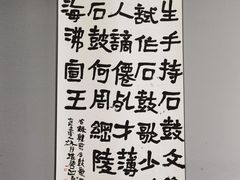 生手持石鼓文
試作石鼓歌少
人謫僊死才薄
石鼓何周綱陵
海沸宣王